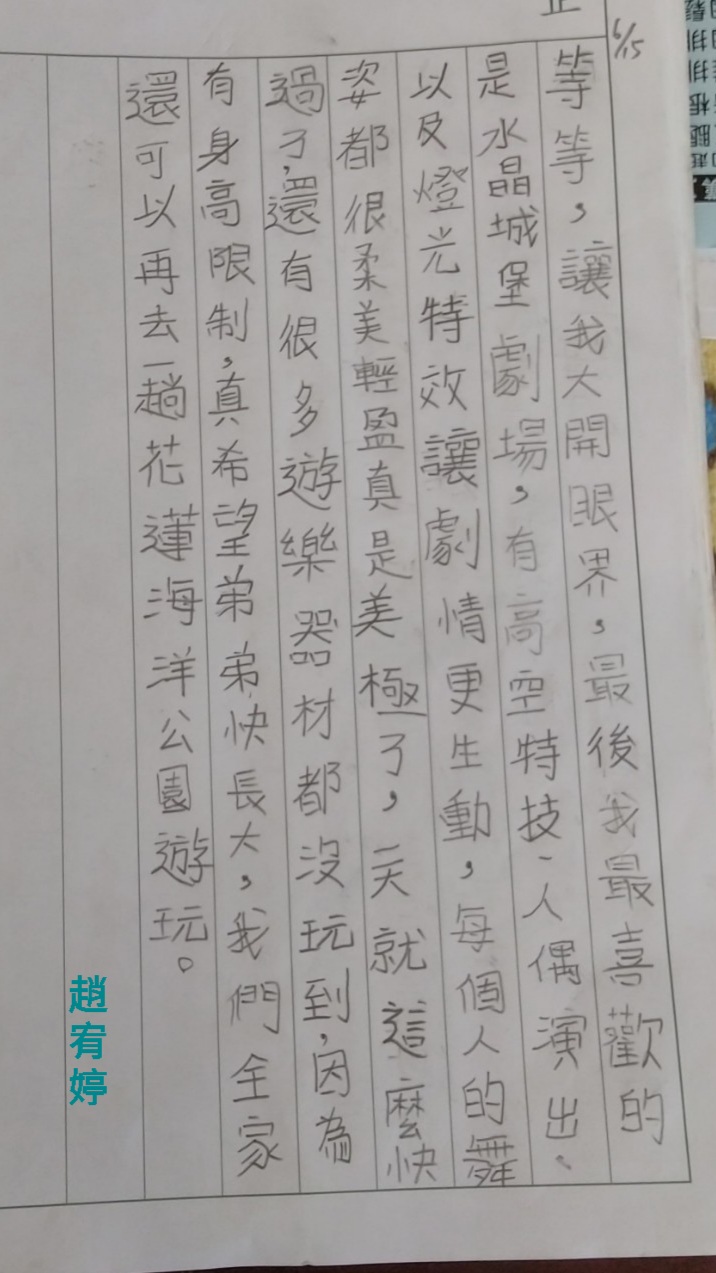 6/15
等等，讓我大開眼界，最後我最喜歡的
是水晶城堡劇場，有高空特技、人偶演出、
以及燈光特效讓劇情更生動，每個人的舞
姿都很柔美輕盈真是美極了，一天就這麼快
過了，還有很多遊樂器材都沒玩到，因為
有身高限制，真希望弟弟快長大，我們全家
還可以再去一趟花蓮海洋公園遊玩。
趙宥婷